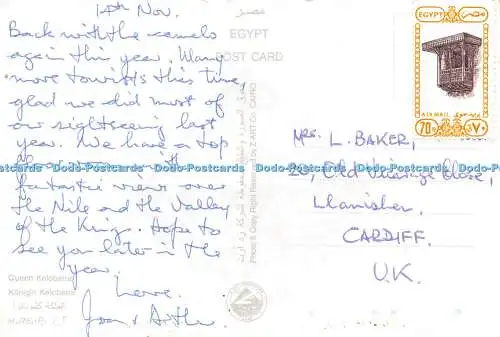 14th Nov.
Back with the camels
again this year. Many
more tourists this time,
glad we did most of
our sightseeing last
year. We have a top
floor with
fantastic views over
the Nile and the Valley
of the Kings. Hope to
see you later in the
year.
Love,
Joan & Arthur
مصر
EGYPT
POST CARD
EGYPT
AIR MAIL
70
Mrs. L. BAKER,
Old Vicarage Close,
Llanishen,
CARDIFF.
U.K.
Queen Kelobatra
Königin Kelobatra
Dodo-Postcards Dodo-Postcards Dodo-Postcards Dodo-Postcards Dodo-Postcards